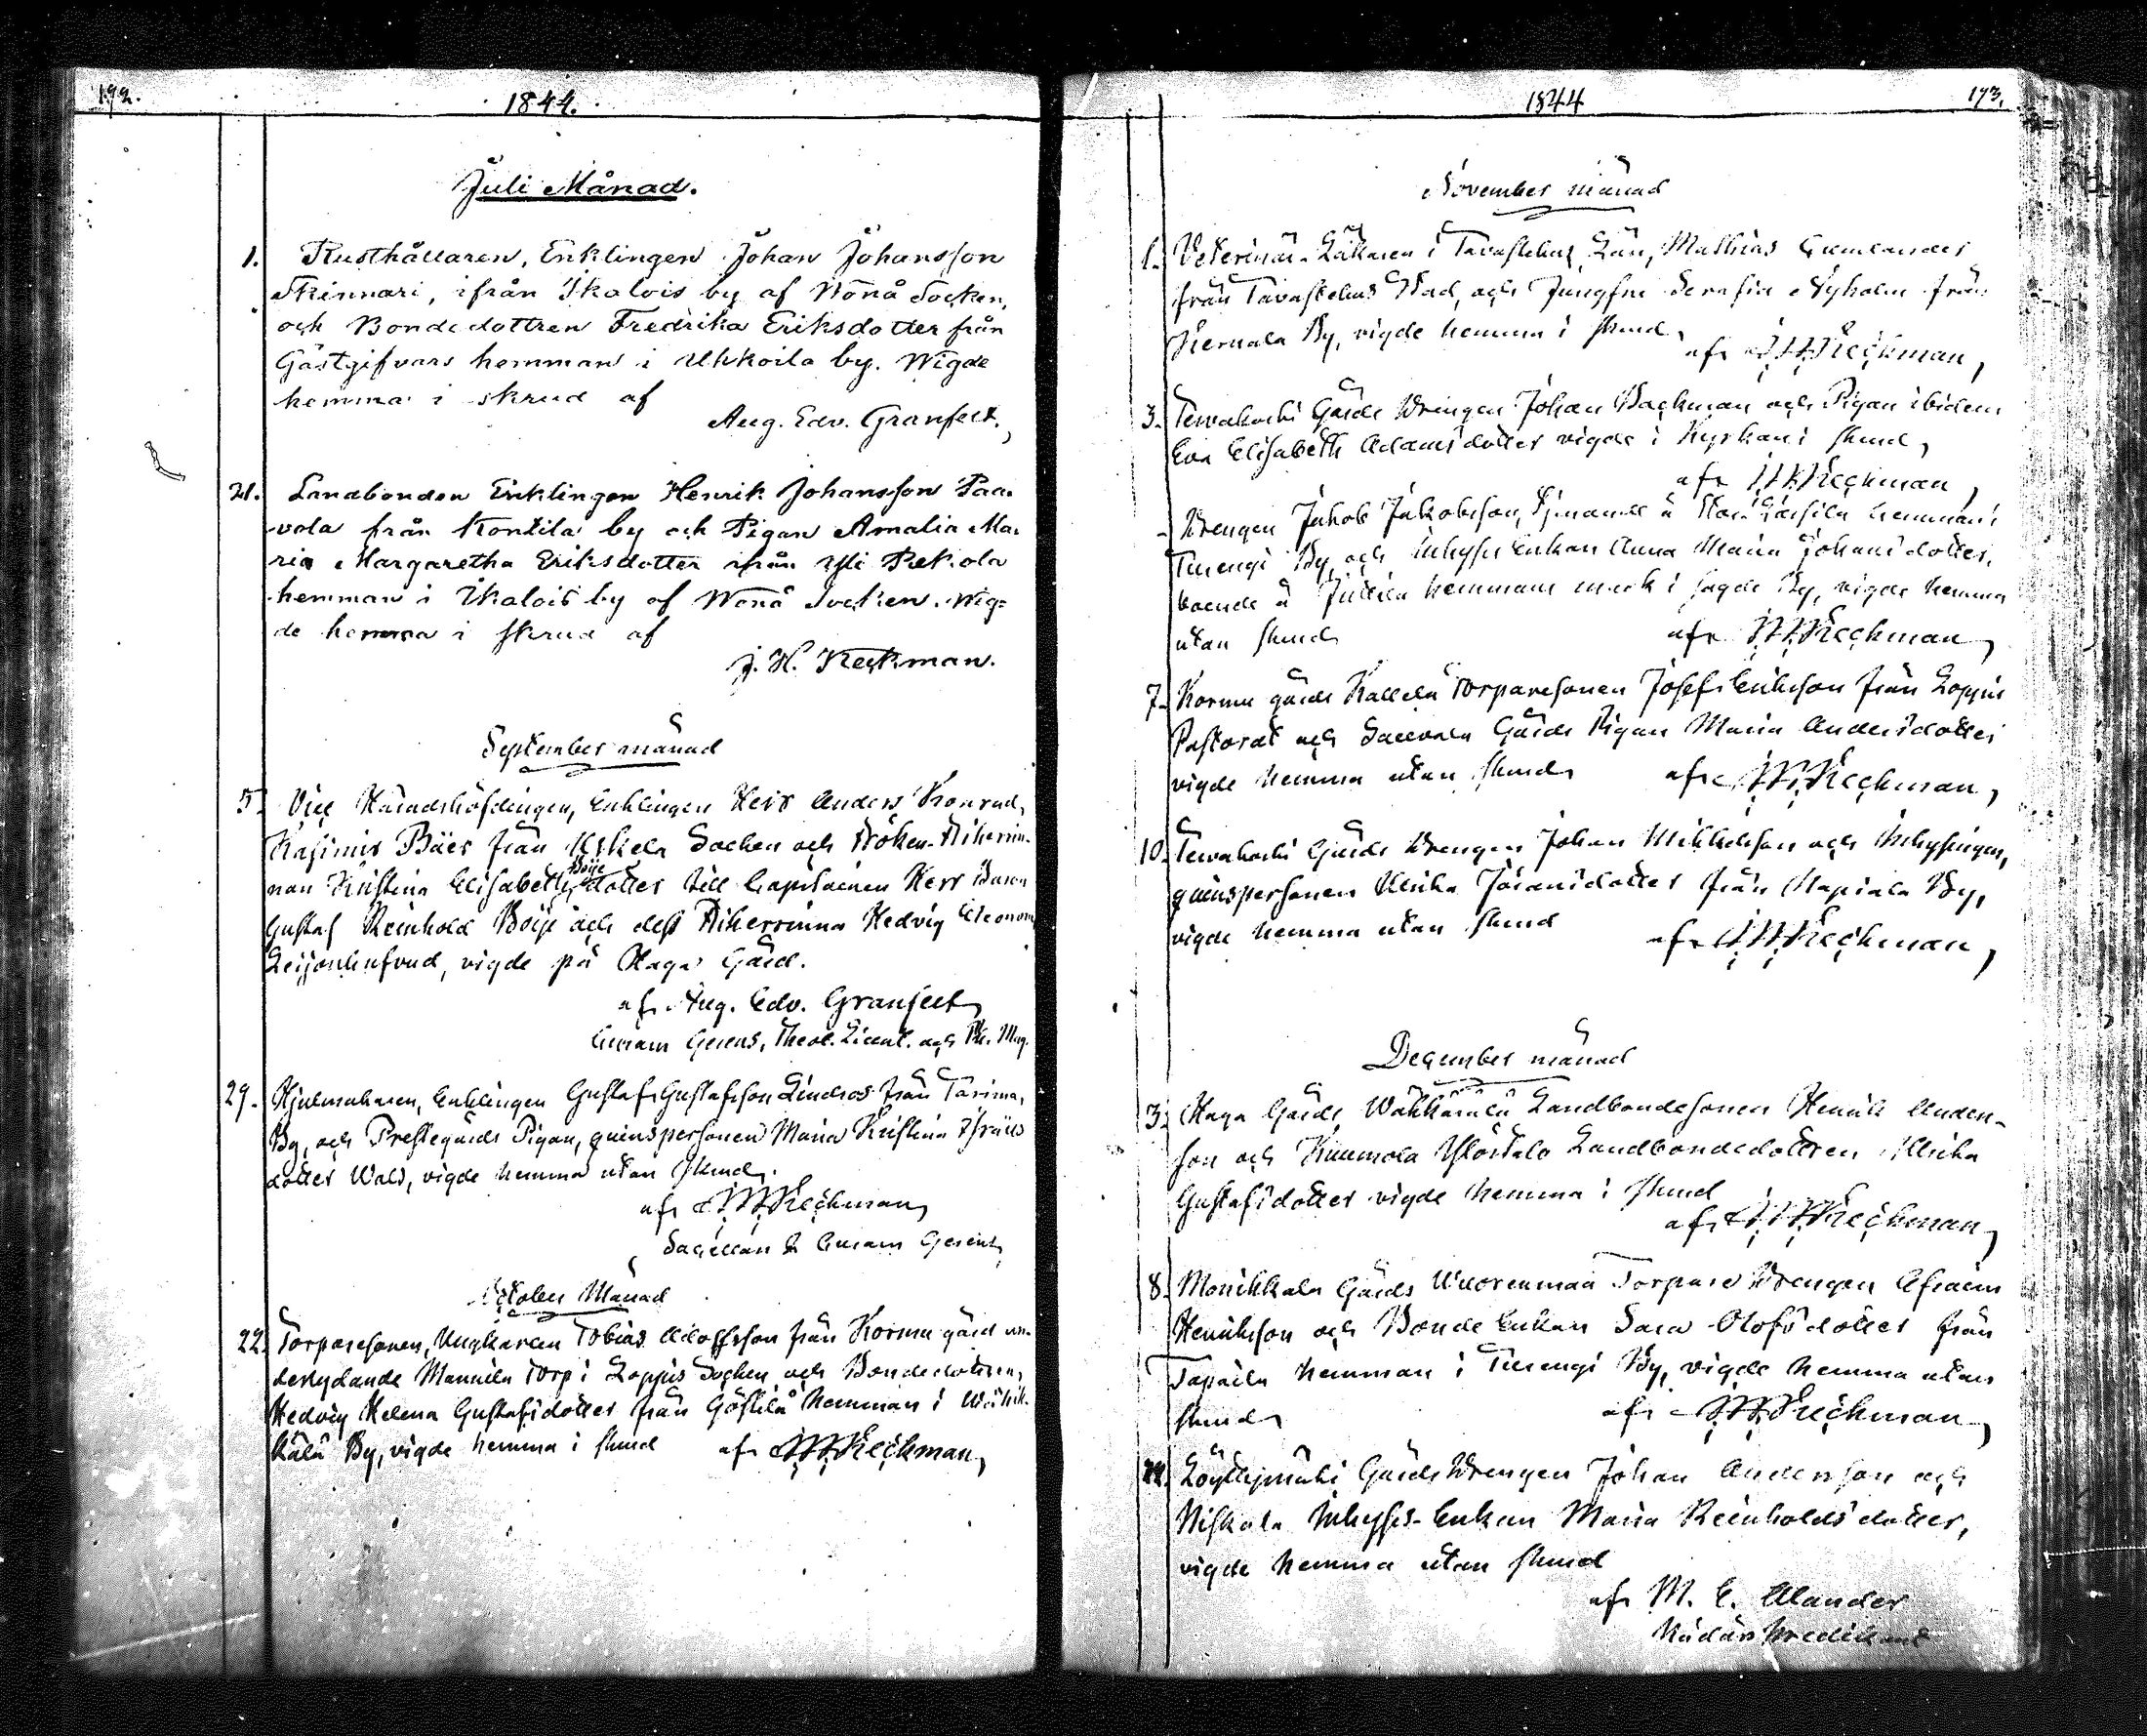 192.
1844.
Juli Månad.
1. Rusthållaren, Enklingen Johan Johansson
Skinnari, ifrån Ikalois by af Wånå Socken,
och Bondedottren Fredrika Eriksdotter från
Gästgifvars hemman i Uhkoila by. Wigde
hemma i skrud af
Aug. Edv. Granfelt.
21. Landbonden Enklingen Henrik Johansson Paa-
vola från Kontila by och Pigan Amalia Ma-
ria Margaretha Eriksdotter ifrån Yli Pekola
hemman i Ikalois by af Wånå Socken. Wig-
de hemma i skrud af
J. H. Keckman.
September månad
5. Vice Häradshöfdingen, Enklingen Herr Anders Konrad
Kasimir Bäer från Uskela Socken och Fröken-Friherrin-
nan Kristina Elisabeth Boije dotter till Capitainen Herr Baron
Gustaf Reinhold Boije och dess Friherrinna Hedvig Eleonora
Leijonhufvud, vigde på Haga Gård.
af Aug. Edv. Granfelt
Curam Gerens, Theol. Licent. och Ph. Mag.
29. Hjulmakaren, Enklingen Gustaf Gustafsson Lindros från Tarima
By, och Prestegårds Pigan, qvinspersonen Maria Kristina
dotter Wald, vigde hemma utan skrud.
af J. H. Keckman
Sacellan & Curam Gerens
October Månad
22. Torparesonen, Ungkarlen Tobias Adolfsson från Kormu gård un-
derlydande Mannila torp i Loppis Socken och Bondedottren
Hedvig Helena Gustafsdotter från Göstilä hemman i
By, vigde hemma i skrud af J. H. Keckman
1844
193.
November månad
1. Veterinär-Läkaren i Tavastehus Län, Mathias
från Tavastehus Stad, och Jungfru Serafia Nyholm från
Kernala By, vigde hemma i skrud
af J. H. Keckman
3. Terwakoski Gårds Drengen Johan Backman och Pigan ibidem
Eva Elisabeth Adamsdotter vigde i Kyrkan i skrud
af J. H. Keckman
- Drengen Jakob Jakobsson, tjenande å hemman i
Turengi By, och Inhyses Enkan Anna Maria Johansdotter,
boende å hemmans mark i sagde By, vigde hemma
utan skrud af J. H. Keckman
7. Kormu gårds Kallela Torparesonen Josef Eriksson från Loppis
Pastorat och Gårds Pigan Maria Andersdotter
vigde hemma utan skrud af J. H. Keckman
10. Terwakoski Gårds Drengen Johan Mikkelsson och Inhysingen,
qvinspersonen Ulrika Göransdotter från By,
vigde hemma utan skrud
af J. H. Keckman
December månad
3. Haga Gårds Landbondesonen Henrik Anders-
son och Landbondedottren Ulrika
Gustafsdotter vigde hemma i skrud
af J. H. Keckman
8. Monikkala Gårds Wuorenmaa Torpare Drengen Efraim
Henriksson och Bonde Enkan Sara Olofsdotter från
Tapaila hemman i Turengi By, vigde hemma utan
skrud af J. H. Keckman
Gårds Drengen Johan Andersson och
Niskala Inhyses-Enkan Maria Reinholdsdotter,
vigde hemma utan skrud
af M. E. Alander